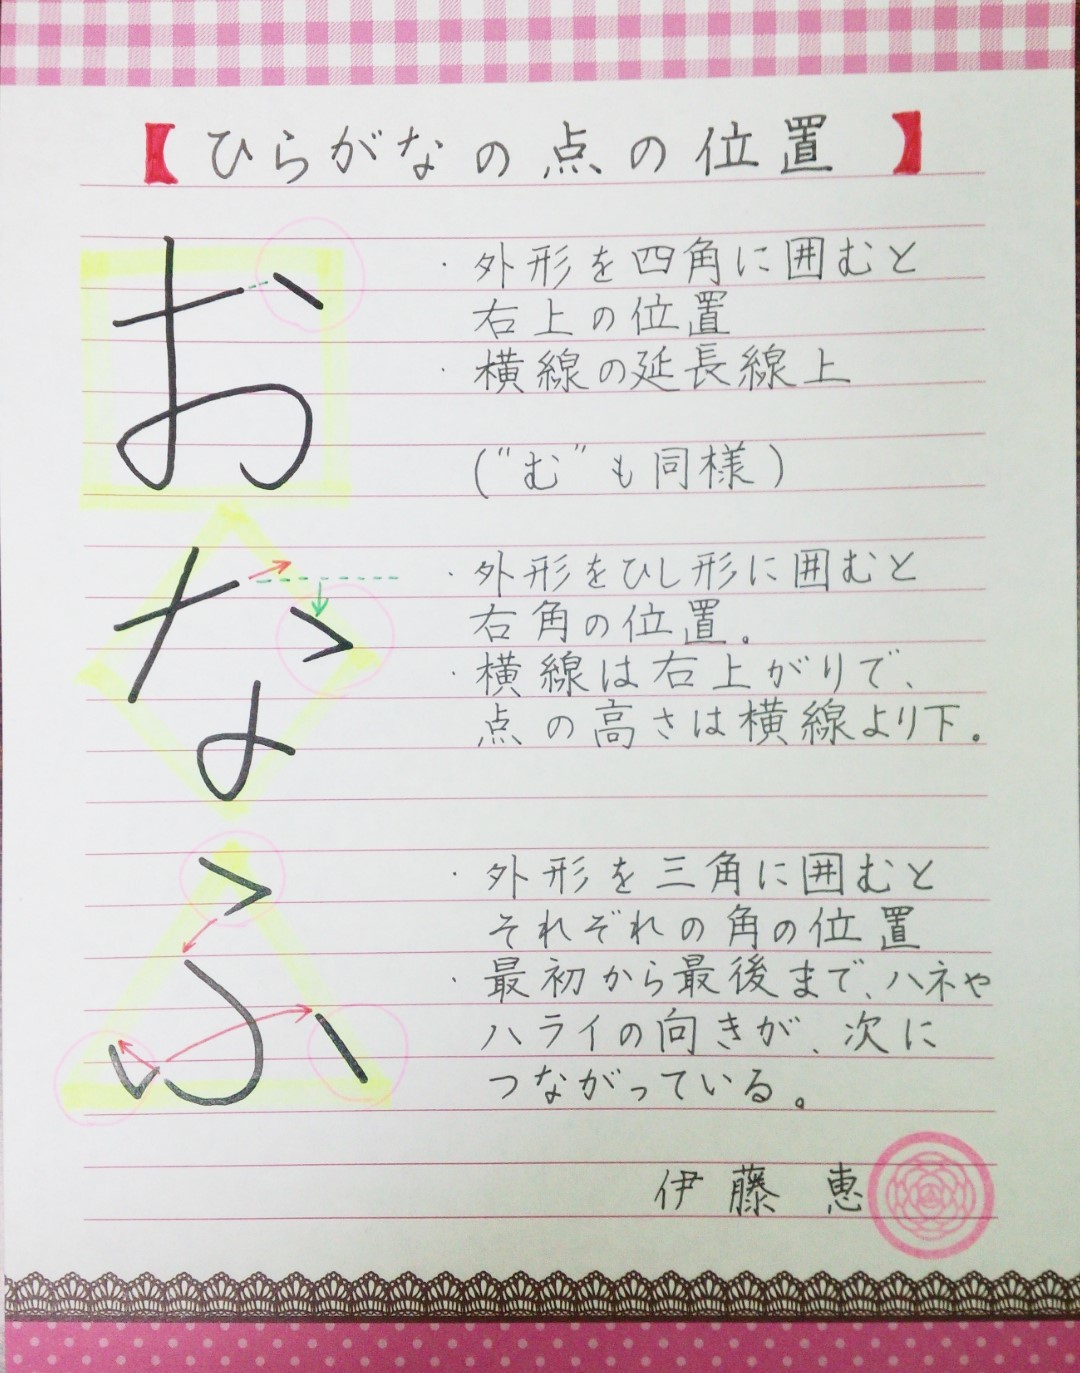 【ひらがなの点の位置】
お
・外形を四角に囲むと
右上の位置
・横線の延長線上
("む"も同様)
な
・外形をひし形に囲むと
右角の位置。
・横線は右上がりで、
点の高さは横線より下。
ふ
・外形を三角に囲むと
それぞれの角の位置
・最初から最後まで、ハネや
ハライの向きが、次に
つながっている。
伊藤 恵